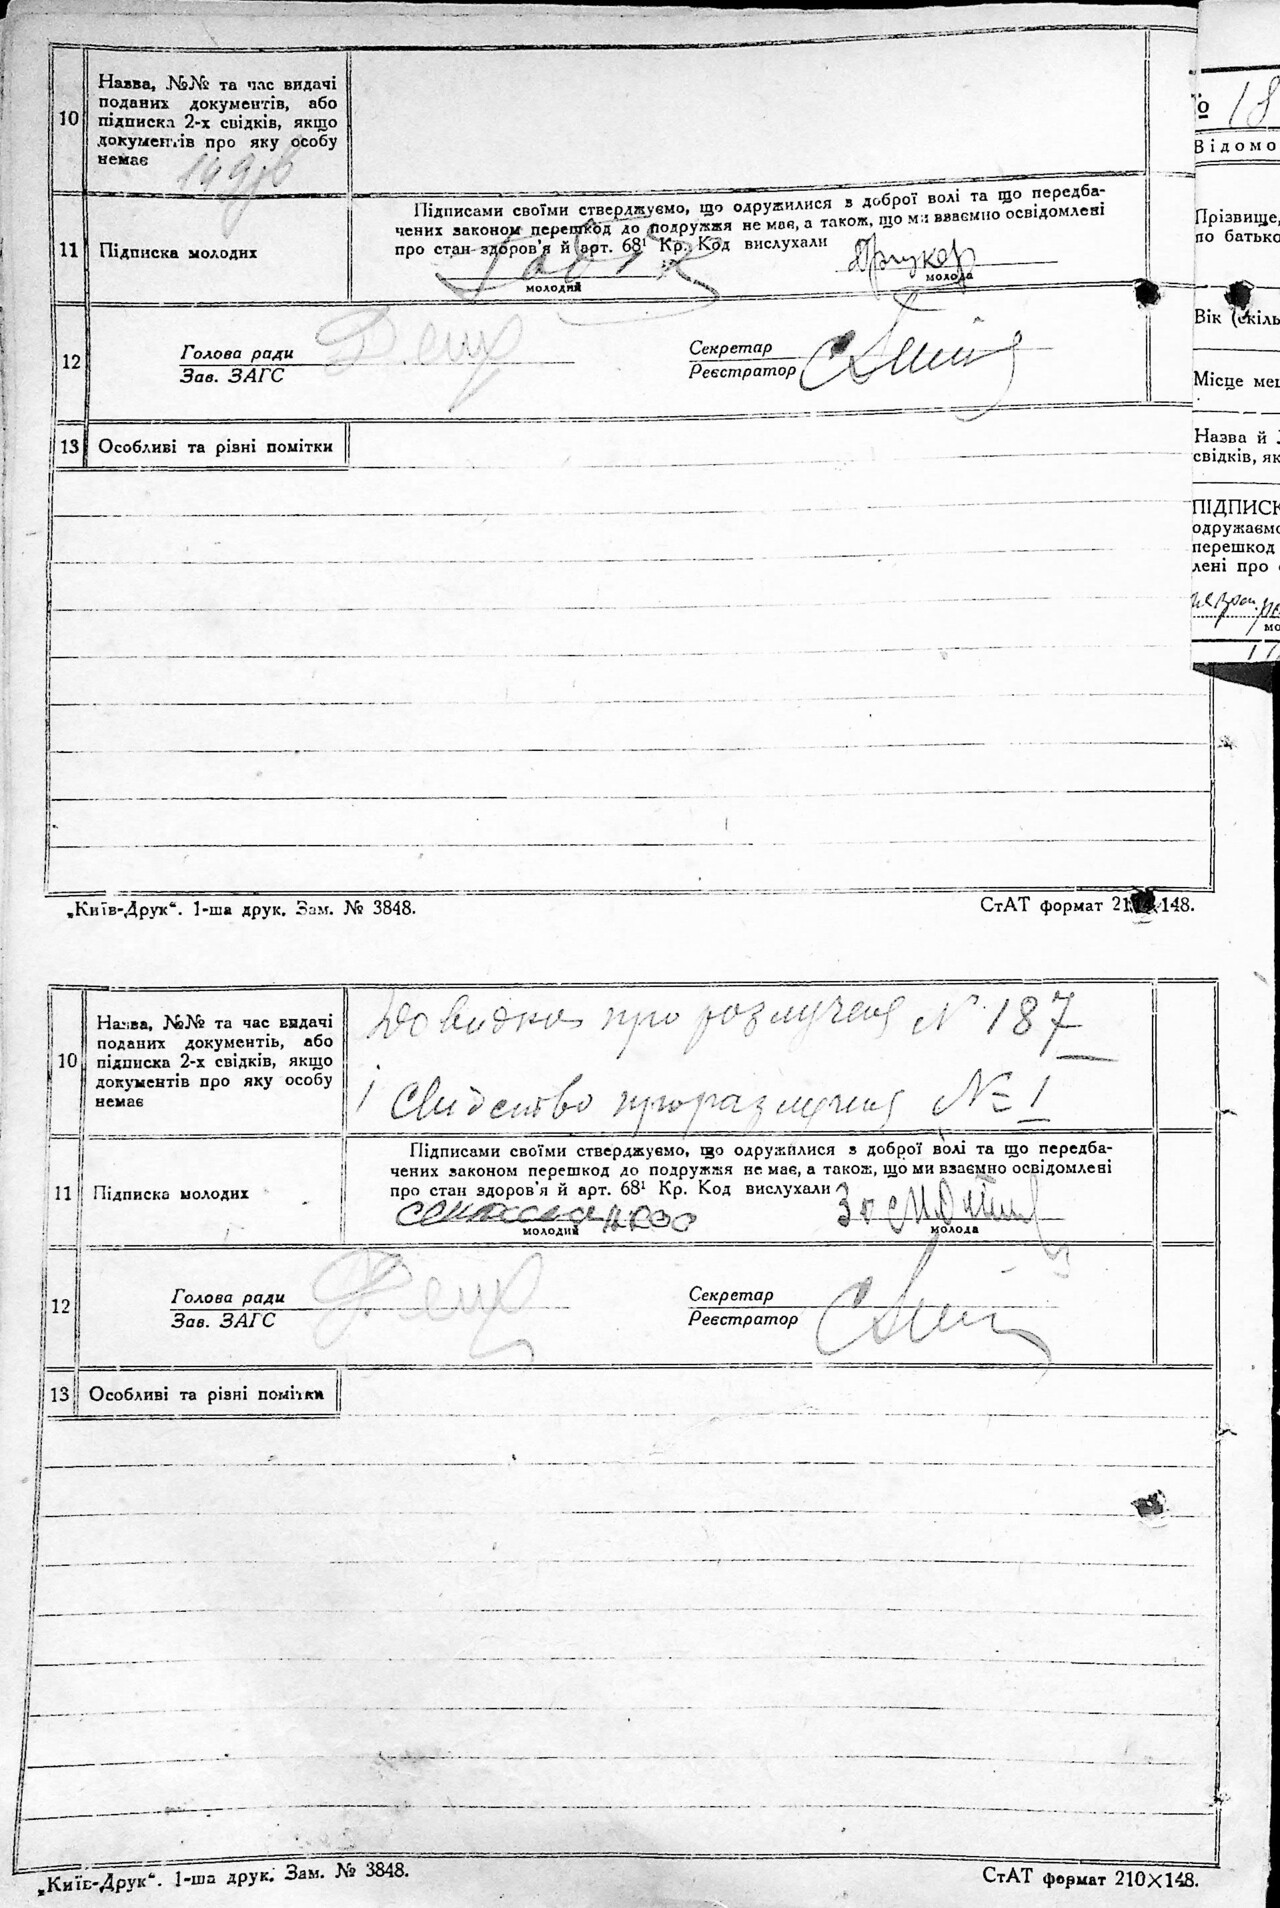 10
Назва, №№ та час видачі
поданих документів, або
підписка 2-х свідків, якщо
документів про яку особу
немає
11
Підписка молодих
Підписами своїми стверджуємо, що одружилися з доброї волі та що передба-
чених законом перешкод до подружжя не має, а також, що ми взаємно освідомлені
про стан здоров'я й арт. 68¹ Кр. Код вислухали
Друкер
молодий
молода
12
Голова ради
Зав. ЗАГС
Секретар
Реєстратор
13
Особливі та рівні помітки
„Київ-Друк“. 1-ша друк. Зам. № 3848.
СтАТ формат 210×148.
№ 18
Відомо
Прізвище,
по батько
Вік (скіль
Місце меш
Назва й
свідків, як
ПІДПИСК
одружаємо
перешкод
лені про
мо
10
Назва, №№ та час видачі
поданих документів, або
підписка 2-х свідків, якщо
документів про яку особу
немає
Довидка про розлученя № 187
і Свидетво про разлученя № 1
11
Підписка молодих
Підписами своїми стверджуємо, що одружилися з доброї волі та що передба-
чених законом перешкод до подружжя не має, а також, що ми взаємно освідомлені
про стан здоров'я й арт. 68¹ Кр. Код вислухали
молодий
молода
12
Голова ради
Зав. ЗАГС
Секретар
Реєстратор
13
Особливі та рівні помітки
„Київ-Друк“. 1-ша друк. Зам. № 3848.
СтАТ формат 210×148.